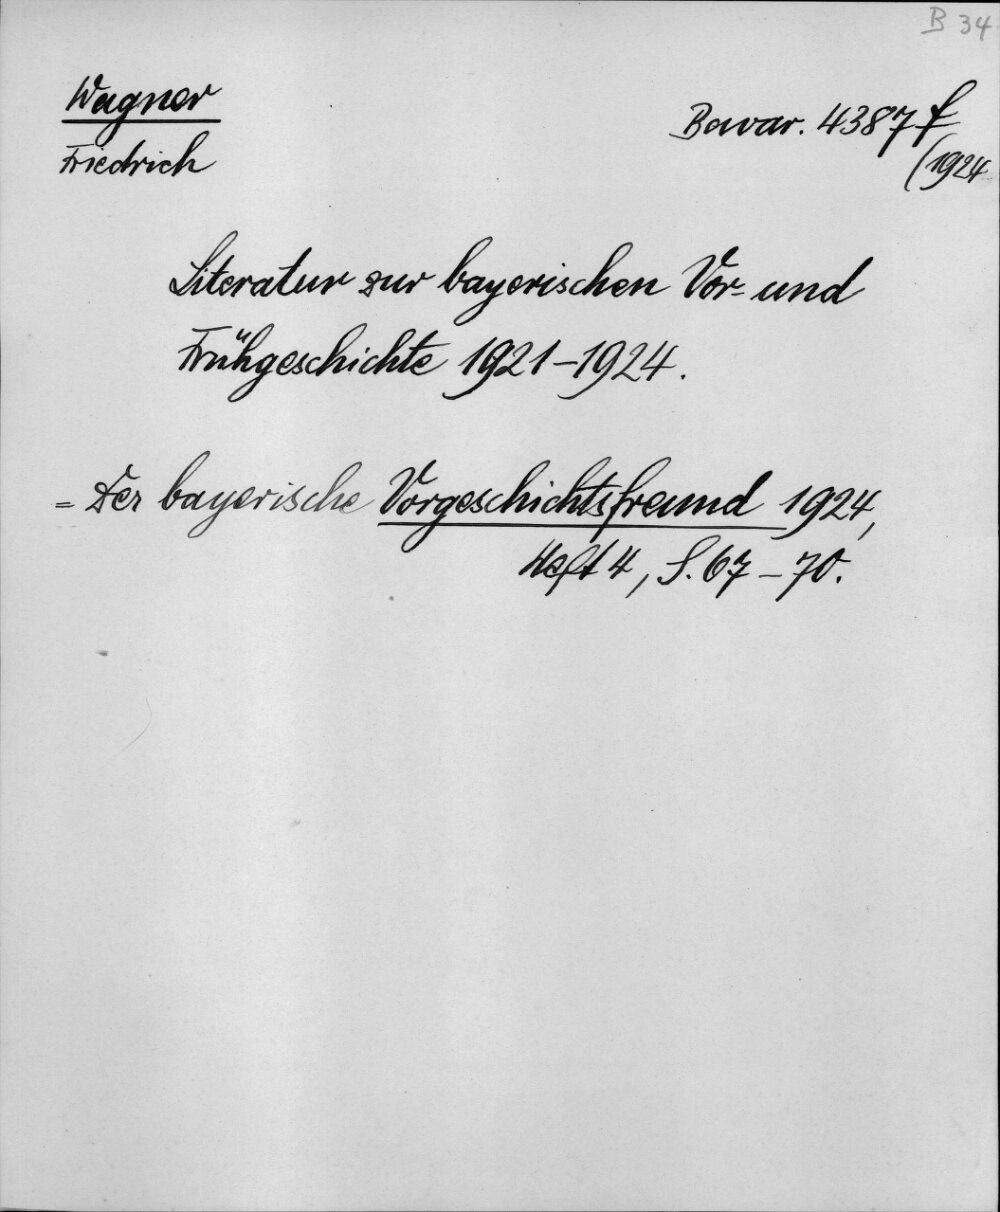 B 34
Wagner
Friedrich
Bavar. 4387 f
(1924
Literatur zur bayerischen Vor- und
Frühgeschichte 1921-1924.
= Der bayerische Vorgeschichtsfreund 1924,
Heft 4, S. 67-70.